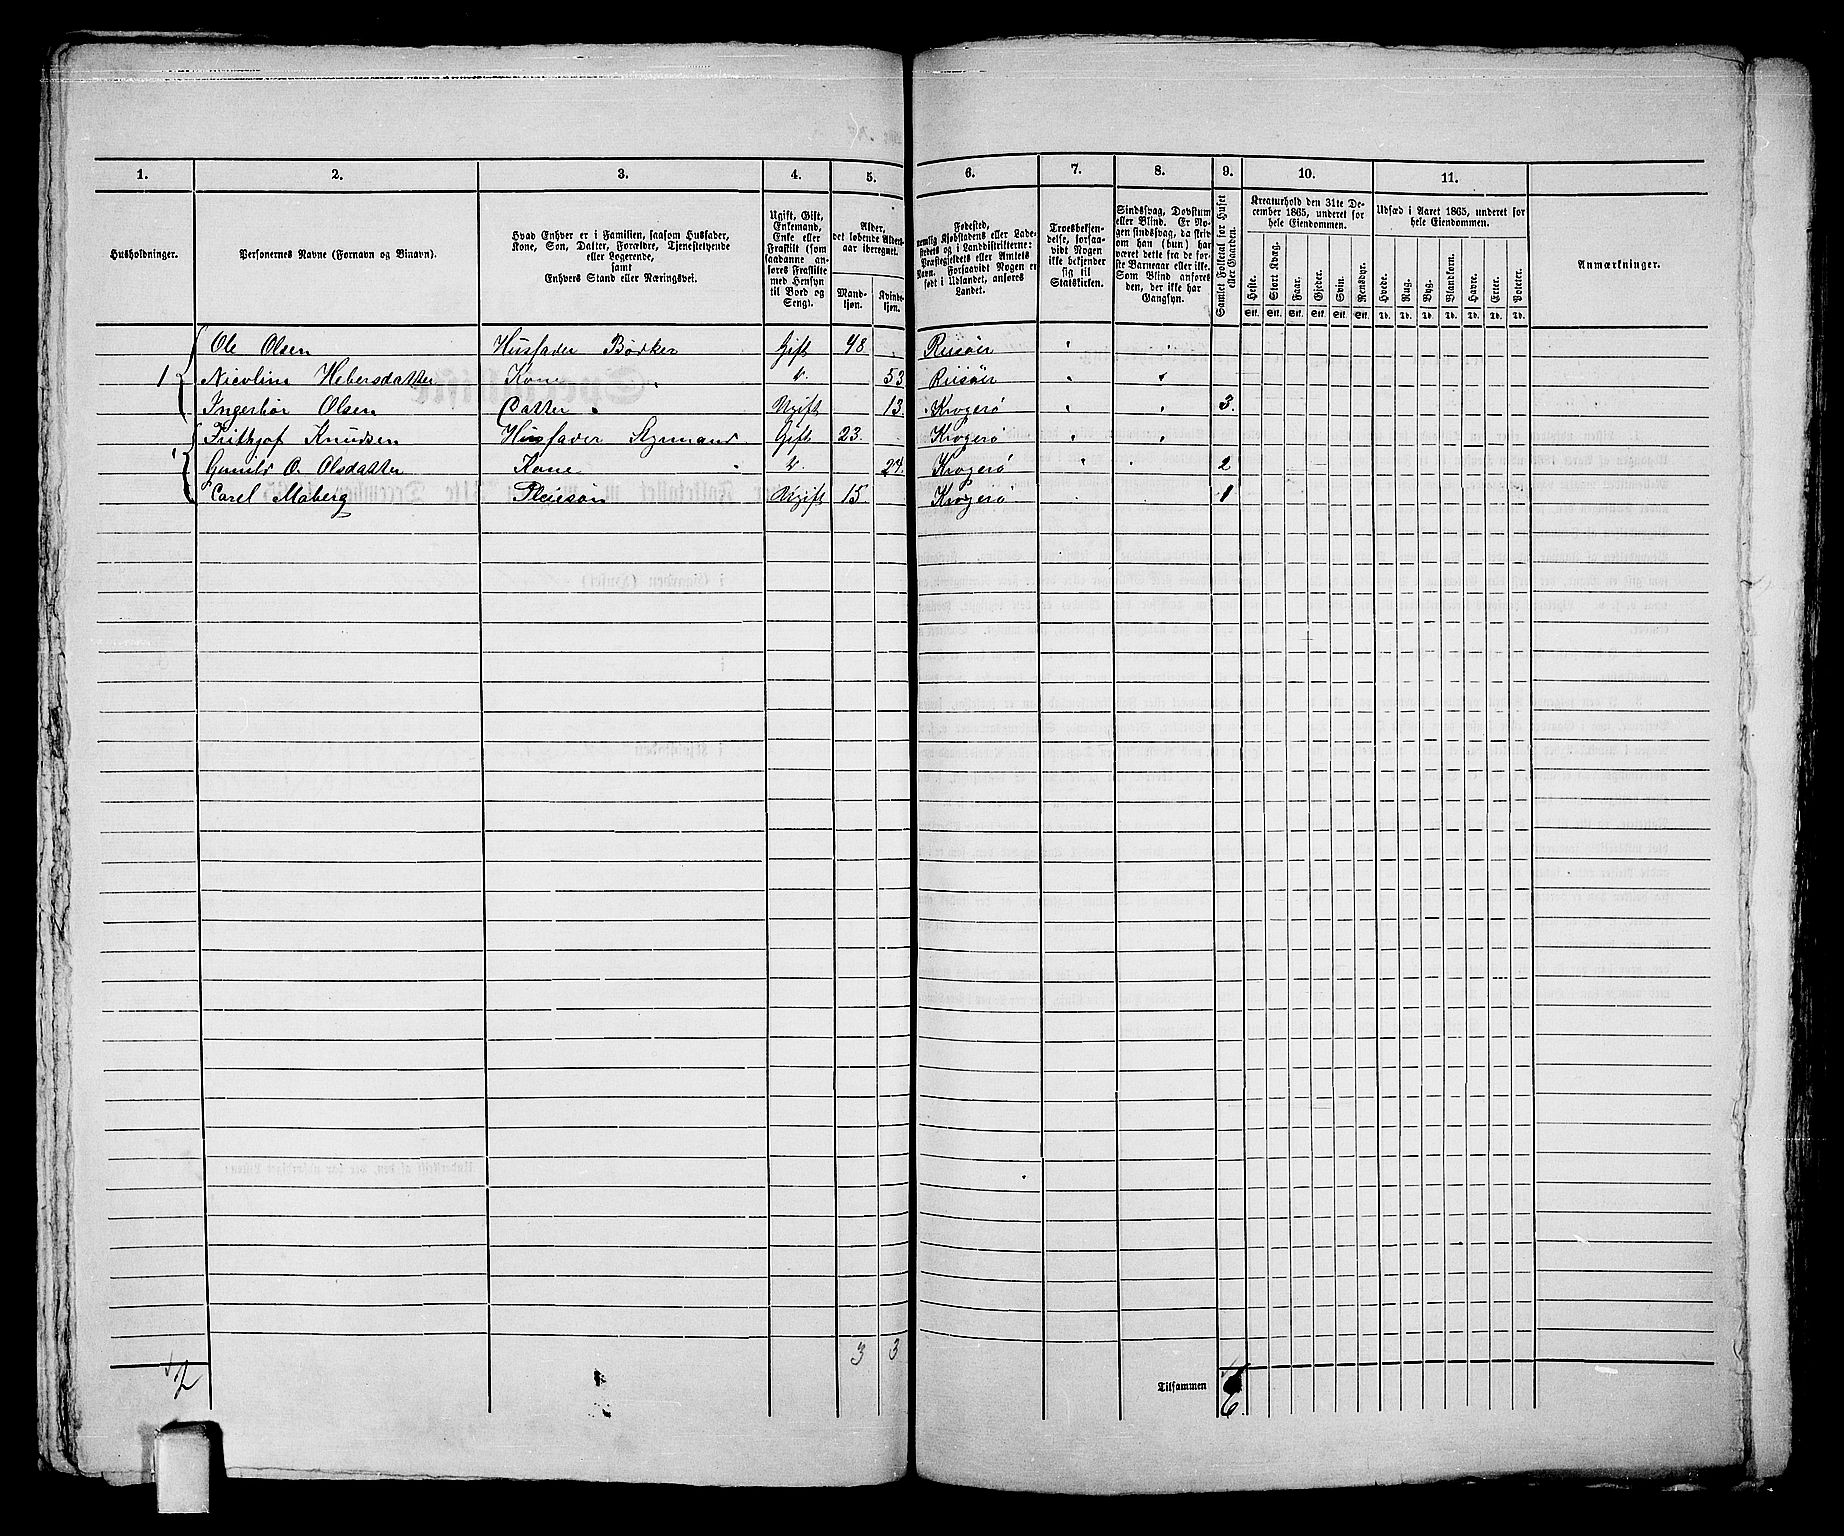 1. 2. 3. 4. 5. 6. 7. 8. 9. 10. 11.
Husholdninger.
Personernes Navne (Fornavn og Binavn).
Hvad Enhver er i Familien, saasom Husfader,
Kone, Søn, Datter, Forældre, Tjenestetyende
eller Logerende,
samt
Enhvers Stand eller Næringsvei.
Ugift, Gift,
Enkemand,
Enke eller
Fraskilt (som
saadanne an-
føres Fraskilte
med Hensyn
til Bord og
Seng).
Alder,
det løbende Alders-
aar iberegnet.
Mand-
kjøn.
Kvinde-
kjøn.
Fødested,
nemlig Kjøbstadens eller Lade-
stedets og i Landdistrikterne:
Præstegjeldets eller Amtets
Navn. Forsaavidt Nogen er
født i Udlandet, anføres
Landet.
Troesbekjen-
delse, forsaa-
vidt Nogen
ikke bekjender
sig til
Statskirken.
Sindssvag, Døvstum
eller Blind. Er No-
gen sindssvag, da skriv
om han (hun) har
været dette fra de før-
ste Barneaar eller ikke.
Som Blind anføres
den, der ikke har
Gangsyn.
Samlet Folketal for Huset
eller Gaarden.
Kreaturhold den 31te De-
cember 1865, underet for
hele Eiendommen.
Heste. Stort Kvæg. Faar. Gjeder. Svin. Rensdyr.
Stk. Stk. Stk. Stk. Stk. Stk.
Udsæd i Aaret 1865, underet for
hele Eiendommen.
Hvede. Rug. Byg. Blandkorn. Havre. Erter. Poteter.
Td. Td. Td. Td. Td. Td. Td.
Anmærkninger.
Ole Olsen Husfader Bødker Gift 48 Riisöer
1 Nicoline Hebersdatter Kone " 53 Riisöer
Ingerbor Olsen Datter Ugift 13. Kragerö 3.
Frithjof Knudsen Husfader Styrmand Gift 23. Kragerö
Gunild O. Olsdatter Kone " 24. Kragerö 2
Carel Moberg Pleiesøn Ugift 15 Kragerö 1
2 3 3
Tilsammen 6.